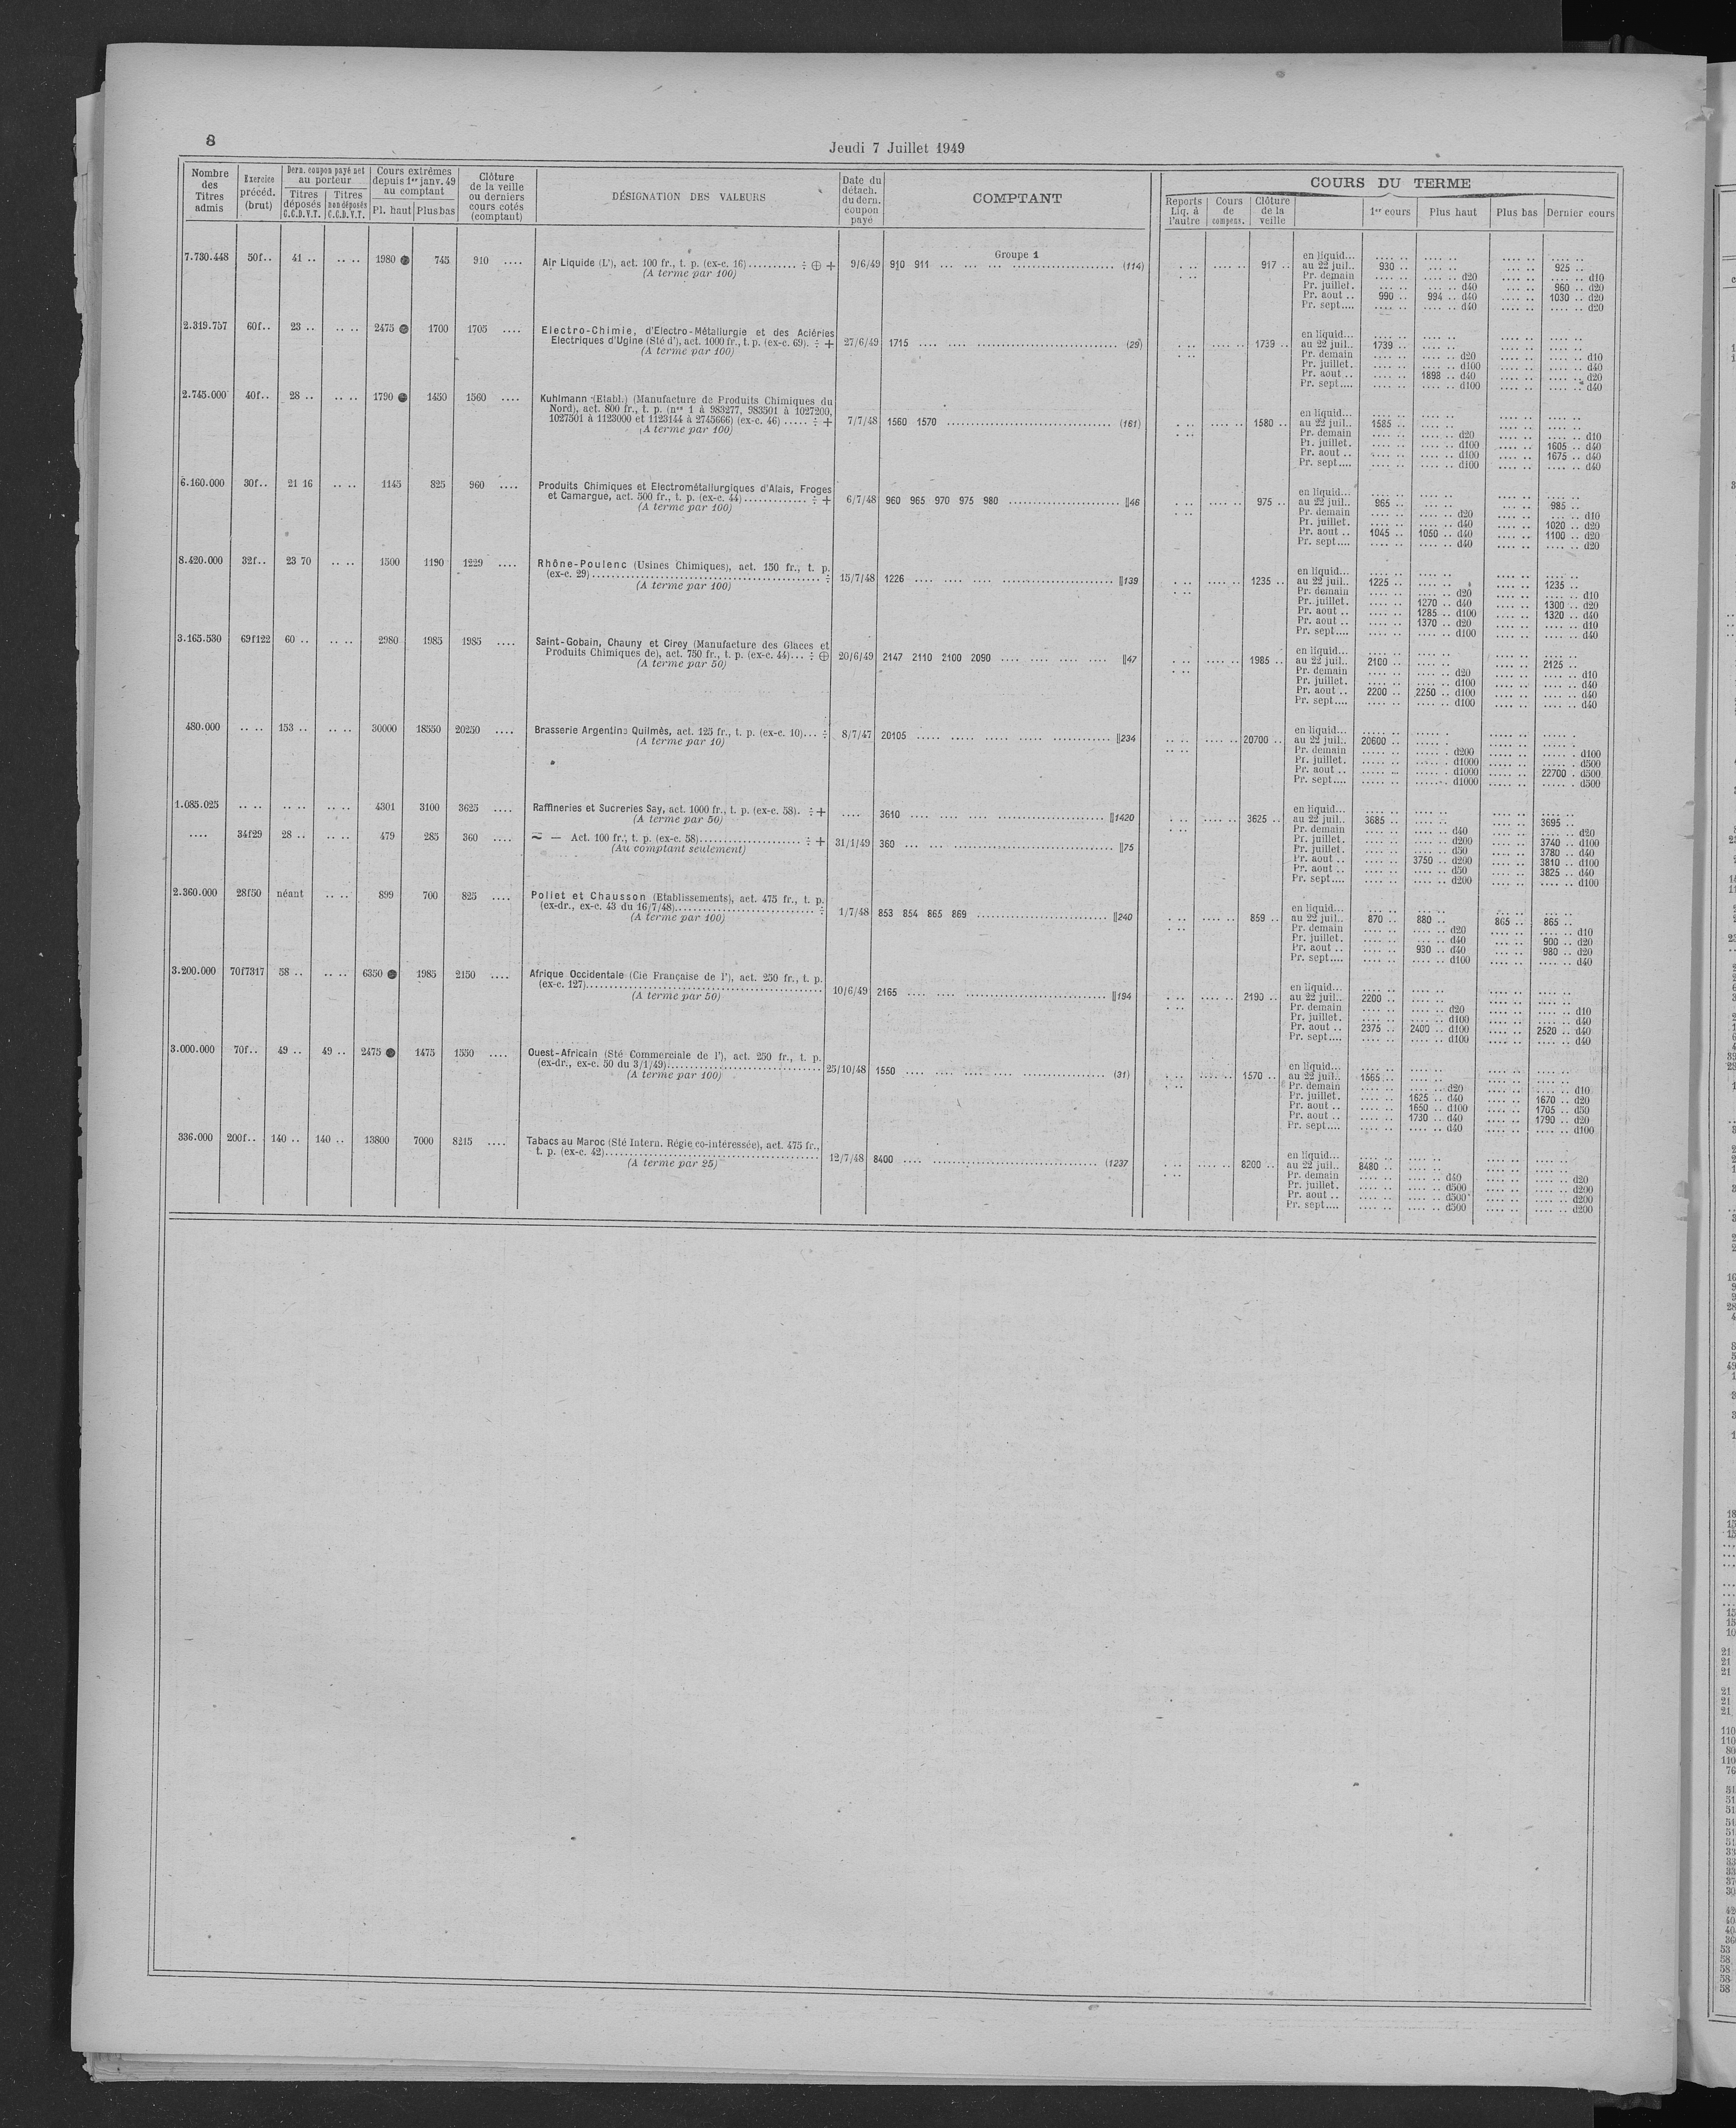 8
Jeudi 7 Juillet 1949
Nombre des Titres admis
Exercice précéd. (brut)
Dern. coupon payé net au porteur
Titres déposés C.C.D.V.T.
Titres non déposés C.C.D.V.T.
Cours extrêmes depuis 1er janv. 49 au comptant
Pl. haut
Plus bas
Clôture de la veille ou derniers cours cotés (comptant)
DÉSIGNATION DES VALEURS
Date du détach. du dern. coupon payé
COMPTANT
COURS DU TERME
Reports Liq. à l'autre
Cours de compens.
Clôture de la veille
1er cours
Plus haut
Plus bas
Dernier cours
Groupe 1
7.730.448 50f.. 41 .. .. .. 1980 ● 745 910 ....
Air Liquide (L'), act. 100 fr., t. p. (ex-c. 16).......... ÷ ⊕ + 9/6/49 910 911 (114)
(A terme par 100)
917 ..
en liquid...
au 22 juil.. 930 .. 925 ..
Pr. demain d20 d10
Pr. juillet. d40 960 .. d20
Pr. aout .. 990 .. 994 .. d40 1030 .. d20
Pr. sept.... d40 d20
2.319.757 60f.. 23 .. .. .. 2475 ● 1700 1705 ....
Electro-Chimie, d'Electro-Métallurgie et des Aciéries
Electriques d'Ugine (Sté d'), act. 1000 fr., t. p. (ex-c. 69). ÷ + 27/6/49 1715 (29)
(A terme par 100)
1739 ..
en liquid...
au 22 juil.. 1739 ..
Pr. demain d20 d10
Pr. juillet. d100 d40
Pr. aout .. 1898 .. d40 d20
Pr. sept.... d100 d40
2.745.000 40f.. 28 .. .. .. 1790 ● 1450 1560 ....
Kuhlmann (Etabl.) (Manufacture de Produits Chimiques du
Nord), act. 800 fr., t. p. (nos 1 à 983277, 983501 à 1027200,
1027501 à 1123000 et 1123144 à 2745666) (ex-c. 46) ..... ÷ + 7/7/48 1560 1570 (161)
(A terme par 100)
1580 ..
en liquid...
au 22 juil.. 1585 ..
Pr. demain d20 d10
Pr. juillet. d100 1605 .. d40
Pr. aout .. d100 1675 .. d40
Pr. sept.... d100 d40
6.160.000 30f.. 21 16 .. .. 1145 825 960 ....
Produits Chimiques et Electrométallurgiques d'Alais, Froges
et Camargue, act. 500 fr., t. p. (ex-c. 44)............ ÷ + 6/7/48 960 965 970 975 980 ||46
(A terme par 100)
975 ..
en liquid...
au 22 juil.. 965 .. 985 ..
Pr. demain d20 d10
Pr. juillet. d40 1020 .. d20
Pr. aout .. 1045 .. 1050 .. d40 1100 .. d20
Pr. sept.... d40 d20
8.420.000 32f.. 23 70 .. .. 1500 1190 1229 ....
Rhône-Poulenc (Usines Chimiques), act. 150 fr., t. p.
(ex-c. 29)........ ÷ 15/7/48 1226 ||139
(A terme par 100)
1235 ..
en liquid...
au 22 juil.. 1225 .. 1235 ..
Pr. demain d20 d10
Pr. juillet. 1270 .. d40 1300 .. d20
Pr. aout .. 1285 .. d100 1320 .. d40
Pr. aout .. 1370 .. d20 d10
Pr. sept.... d100 d40
3.165.530 69f122 60 .. .. .. 2980 1985 1985 ....
Saint-Gobain, Chauny et Cirey (Manufacture des Glaces et
Produits Chimiques de), act. 750 fr., t. p. (ex-c. 44)... ÷ ⊕ 20/6/49 2147 2110 2100 2090 ||47
(A terme par 50)
1985 ..
en liquid...
au 22 juil.. 2100 .. 2125 ..
Pr. demain d20 d10
Pr. juillet. d100 d40
Pr. aout .. 2200 .. 2250 .. d100 d40
Pr. sept.... d100 d40
480.000 .. .. 153 .. .. .. 30000 18550 20250 ....
Brasserie Argentine Quilmès, act. 125 fr., t. p. (ex-c. 10)... ÷ 8/7/47 20105 ||234
(A terme par 10)
20700 ..
en liquid...
au 22 juil.. 20600 ..
Pr. demain d200 d100
Pr. juillet. d1000 d500
Pr. aout .. d1000 22700 . d500
Pr. sept.... d1000 d500
1.085.025 .. .. .. .. .. .. 4301 3100 3625 ....
Raffineries et Sucreries Say, act. 1000 fr., t. p. (ex-c. 58). ÷ + .... 3610 ||1420
(A terme par 50)
.... 34f29 28 .. .. .. 479 285 360 ....
— Act. 100 fr., t. p. (ex-c. 58)........ ÷ + 31/1/49 360 ||75
(Au comptant seulement)
3625 ..
en liquid...
au 22 juil.. 3685 .. 3695 ..
Pr. demain d40 d20
Pr. juillet. d200 3740 .. d100
Pr. juillet. d50 3780 .. d40
Pr. aout .. 3750 .. d200 3810 .. d100
Pr. aout .. d50 3825 .. d40
Pr. sept.... d200 d100
2.360.000 28f50 néant .. .. 899 700 825 ....
Poliet et Chausson (Etablissements), act. 475 fr., t. p.
(ex-dr., ex-c. 43 du 16/7/48)........ ÷ 1/7/48 853 854 865 869 ||240
(A terme par 100)
859 ..
en liquid...
au 22 juil.. 870 .. 880 .. 865 .. 865 ..
Pr. demain d20 d10
Pr. juillet. d40 900 .. d20
Pr. aout .. 930 .. d40 980 .. d20
Pr. sept.... d100 d40
3.200.000 70f7317 58 .. .. .. 6350 ● 1985 2150 ....
Afrique Occidentale (Cie Française de l'), act. 250 fr., t. p.
(ex-c. 127)........ 10/6/49 2165 ||194
(A terme par 50)
2190 ..
en liquid...
au 22 juil.. 2200 ..
Pr. demain d20 d10
Pr. juillet. d100 d40
Pr. aout .. 2375 .. 2400 .. d100 2520 .. d40
Pr. sept.... d100 d40
3.000.000 70f.. 49 .. 49 .. 2475 ● 1475 1550 ....
Ouest-Africain (Sté Commerciale de l'), act. 250 fr., t. p.
(ex-dr., ex-c. 50 du 3/1/49)........ 25/10/48 1550 (31)
(A terme par 100)
1570 ..
en liquid...
au 22 juil.. 1565 ..
Pr. demain d20 d10
Pr. juillet. 1625 .. d40 1670 .. d20
Pr. aout .. 1650 .. d100 1705 .. d50
Pr. aout .. 1730 .. d40 1790 .. d20
Pr. sept.... d40 d100
336.000 200f.. 140 .. 140 .. 13800 7000 8215 ....
Tabacs au Maroc (Sté Intern. Régie co-intéressée), act. 475 fr.,
t. p. (ex-c. 42)........ 12/7/48 8400 (1237
(A terme par 25)
8200 ..
en liquid...
au 22 juil.. 8480 ..
Pr. demain d40 d20
Pr. juillet. d500 d200
Pr. aout .. d500 d200
Pr. sept.... d500 d200